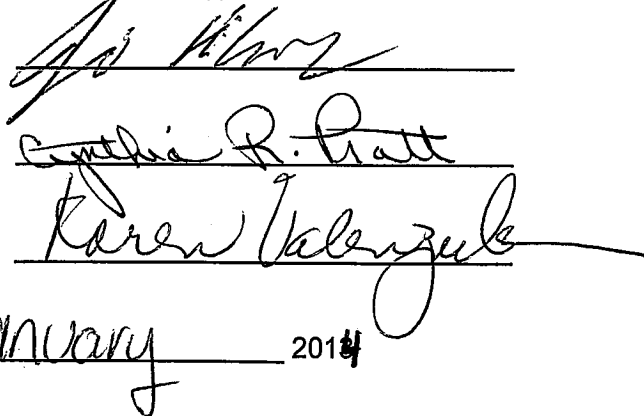 Cynthia R. Pratt
Karen Valenzuela
anuary 2014